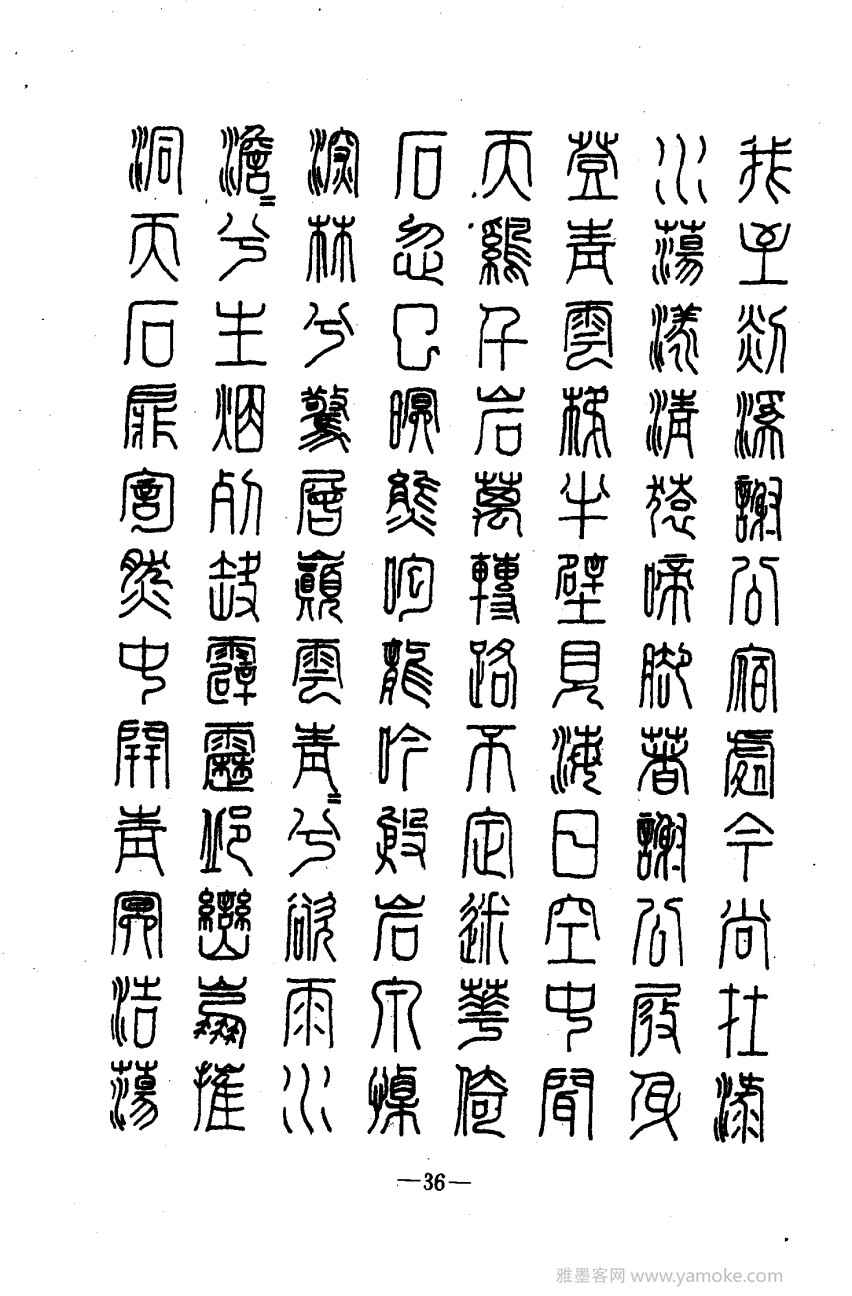 我至剡溪謝公宿處今尚在渌
水蕩漾清猿啼腳著謝公屐身
登青雲梯半壁見海日空中聞
天雞千岩萬轉路不定迷華倚
石忽已暝熊咆龍吟殷岩泉慄
深林兮驚層巔雲青=兮欲雨水
澹=兮生烟列缺霹靂邱巒崩摧
洞天石扉訇然中開青冥浩蕩
—36—
雅墨客网 www.yamoke.com